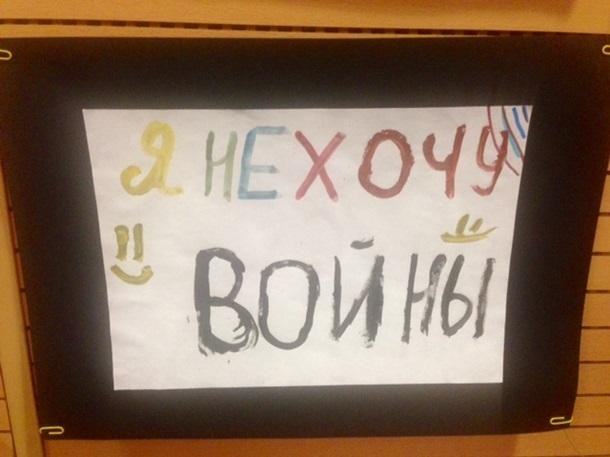 Я НЕ ХОЧУ
ВОЙНЫ